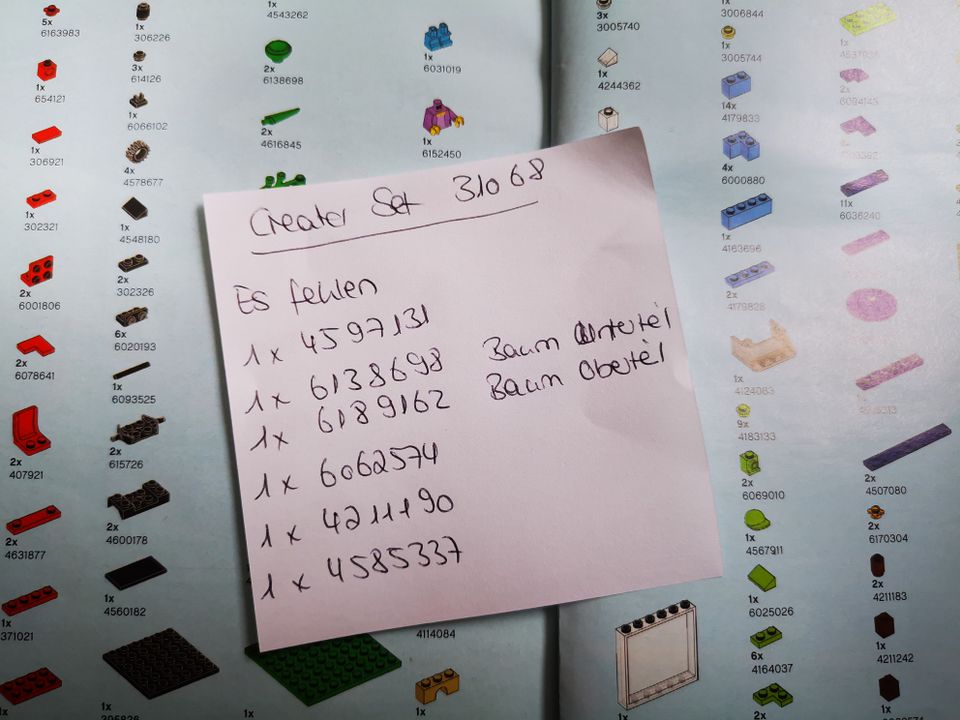 5x
6163983
1x
654121
1x
306921
1x
302321
2x
6001806
2x
6078641
2x
407921
2x
4631877
1x
371021
1x
306226
3x
614126
1x
6066102
4x
4578677
1x
4548180
2x
302326
6x
6020193
1x
6093525
2x
615726
2x
4600178
1x
4560182
1x
1x
4543262
2x
6138698
2x
4616845
1x
1x
6031019
1x
6152450
Creater Set 31068
Es fehlen
1x 4597131
1x 6138698 Baum Unterteil
1x 6189162 Baum Oberteil
1x 6062574
1x 4211190
1x 4585337
4114084
1x
3x
3005740
1x
4244362
1x
1x
3006844
1x
3005744
14x
4179833
4x
6000880
1x
4163696
2x
4179828
1x
4124083
9x
4183133
2x
6069010
1x
4567911
1x
6025026
6x
4164037
2x
1x
2x
6094143
11x
6036240
2x
4507080
2x
6170304
2x
4211183
1x
4211242
1x